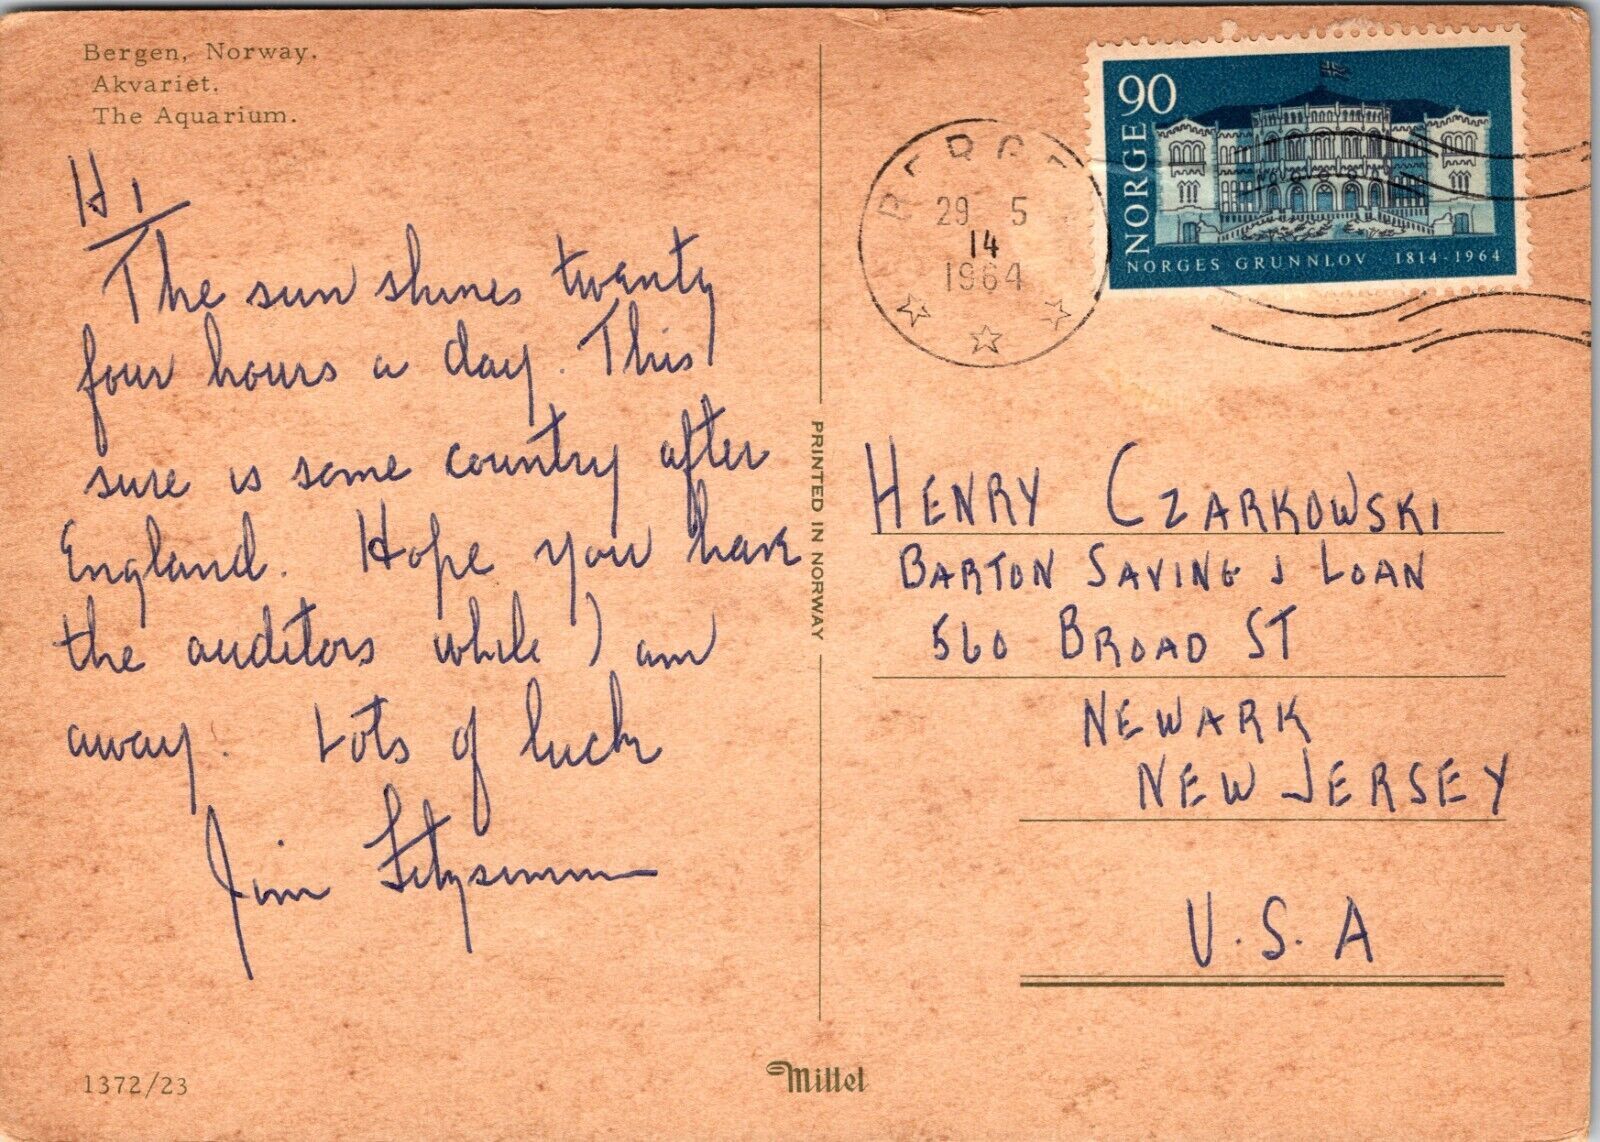 Bergen, Norway.
Akvariet.
The Aquarium.
Hi
The sun shines twenty
four hours a day. This
sure is some country after
England. Hope you have
the auditors while I am
away. Lots of luck
Jim Fitzsimmons
1372/23
PRINTED IN NORWAY
Mittet
BERGEN
29 5
14
1964
90
NORGE
NORGES GRUNNLOV 1814-1964
HENRY CZARKOWSKI
BARTON SAVING & LOAN
560 BROAD ST
NEWARK
NEW JERSEY
U.S.A